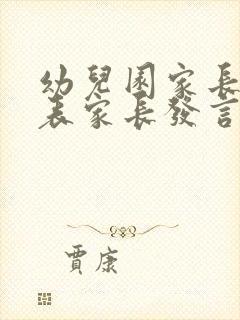 幼兒園家長
表家長發言
賈康